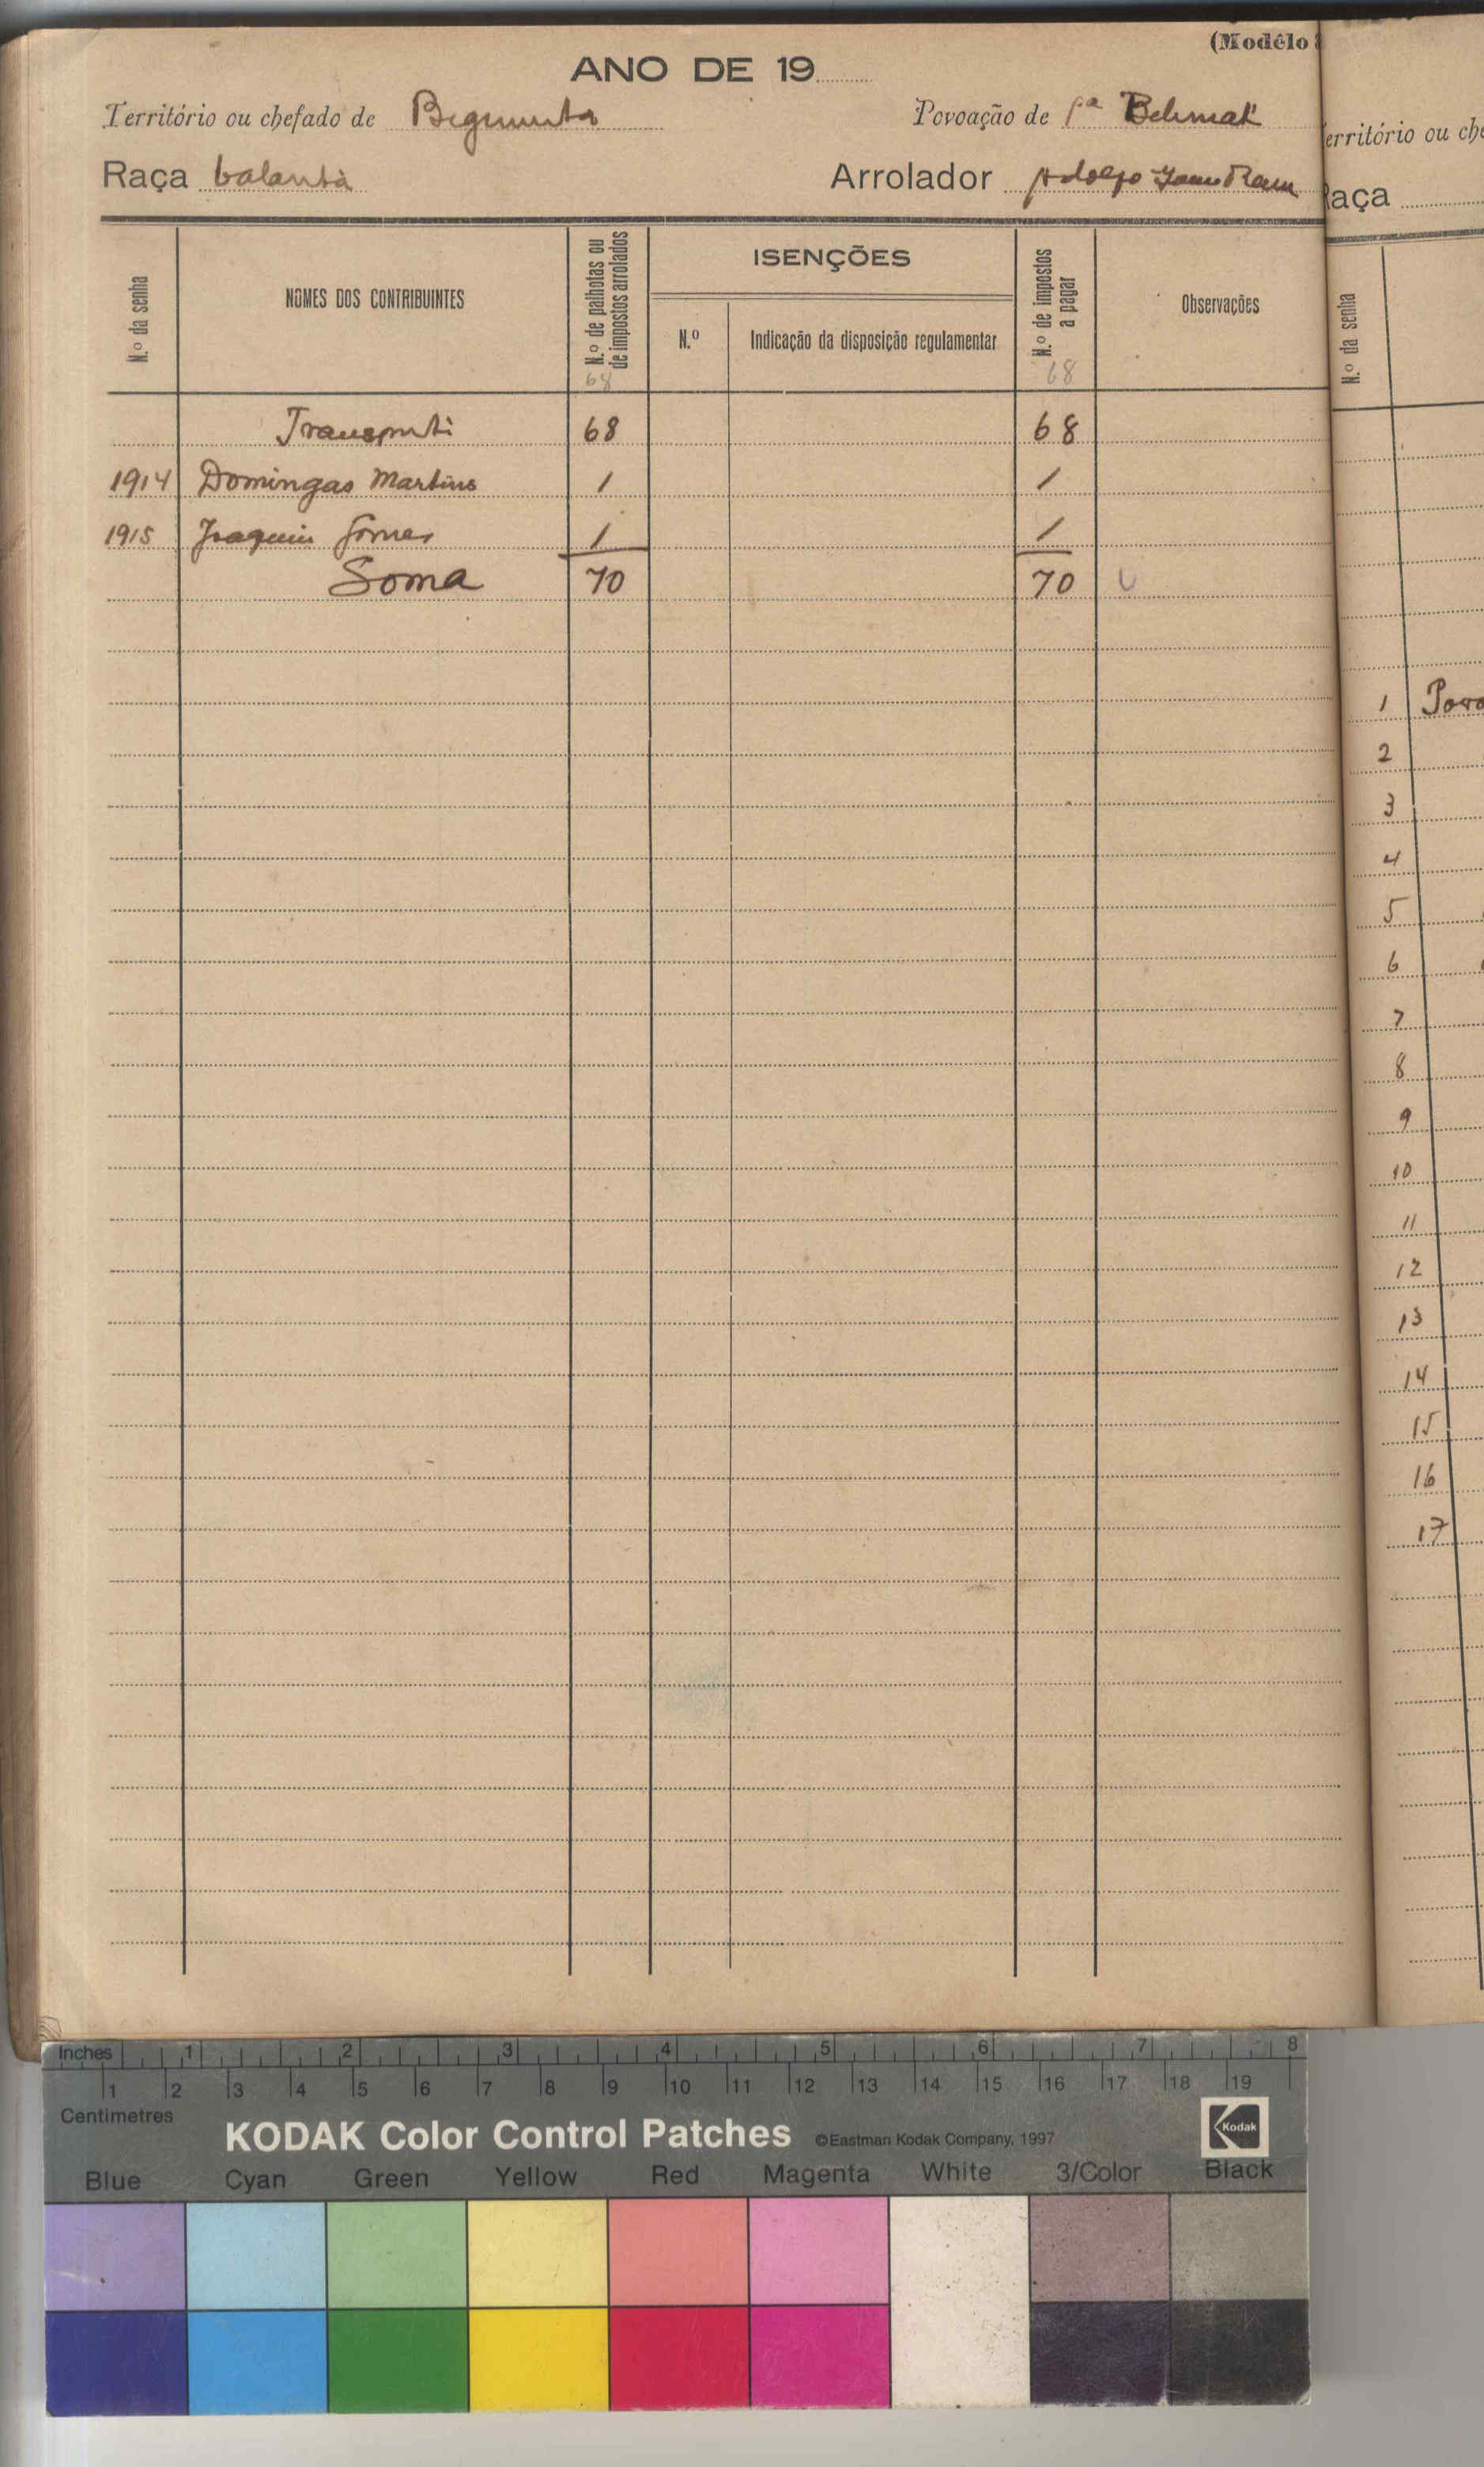 (Modêlo
ANO DE 19
Território ou chefado de
Povoação de
Raça balanta
Arrolador Adolfo
N.º da senha
NOMES DOS CONTRIBUINTES
N.º de palhotas ou de impostos arrolados
68
ISENÇÕES
N.º
Indicação da disposição regulamentar
N.º de impostos a pagar
68
Observações
Transporte 68 68
1914 Domingas Martins 1 1
1915 Joaquim Gomes 1 1
Soma 70 70
erritório ou che
aça
N.º da senha
1 Povo
2
3
4
5
6
7
8
9
10
11
12
13
14
15
16
17
Inches 1 2 3 4 5 6 7 8
1 2 3 4 5 6 7 8 9 10 11 12 13 14 15 16 17 18 19
Centimetres
KODAK Color Control Patches ©Eastman Kodak Company, 1997 Kodak
Blue Cyan Green Yellow Red Magenta White 3/Color Black